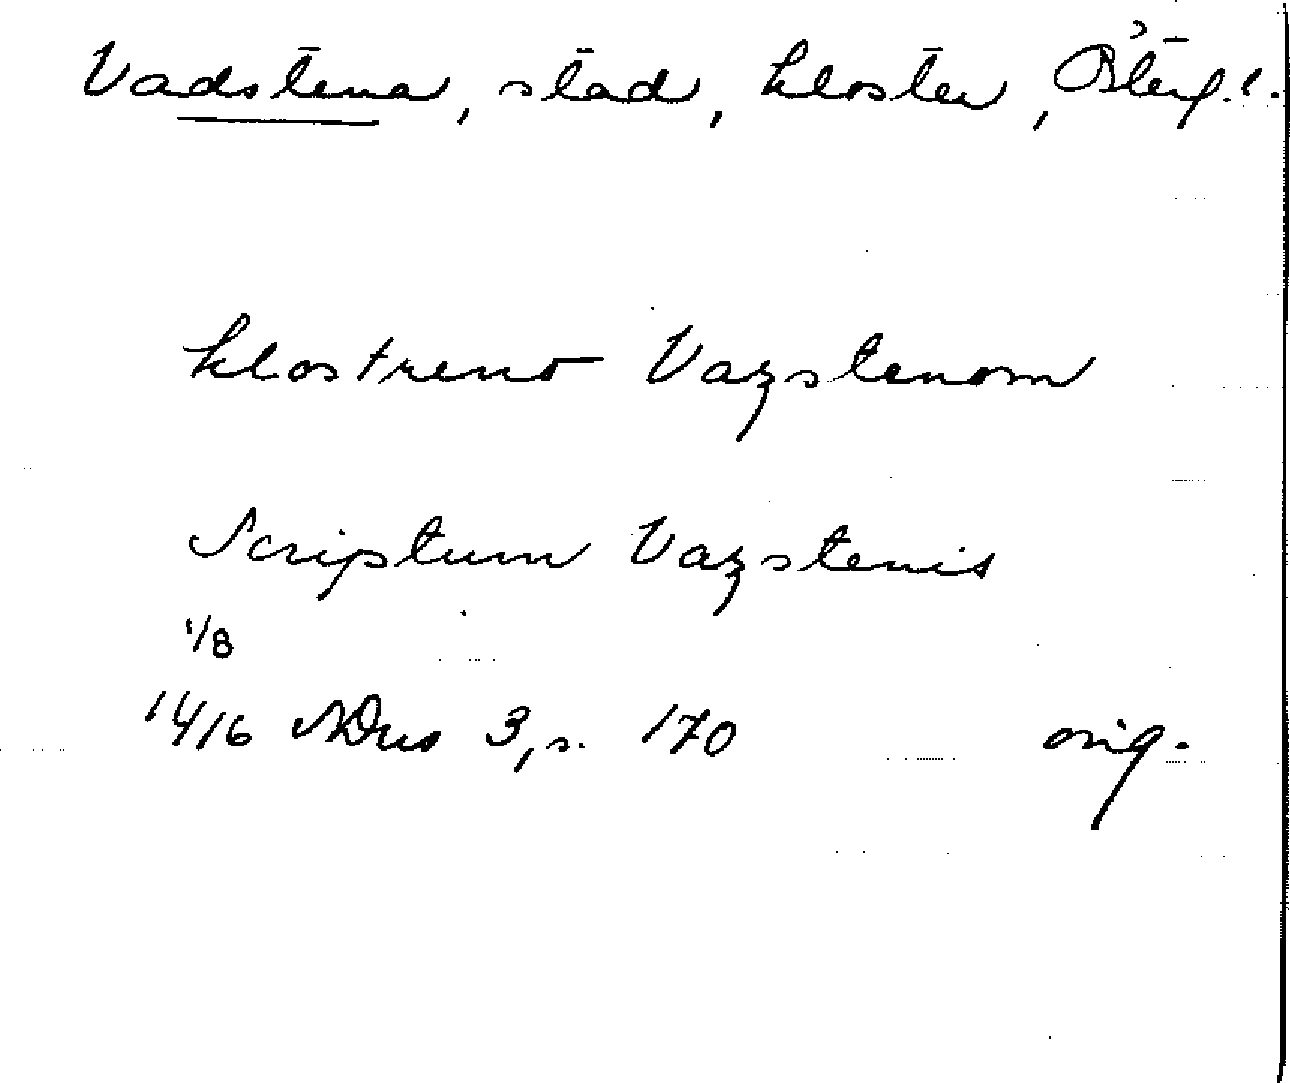 Vadstena, stad, kloster, Östergl.
klostreno Vazstenom
Scriptum Vazstenis
1/8
1416 SDns 3, s. 170 orig.